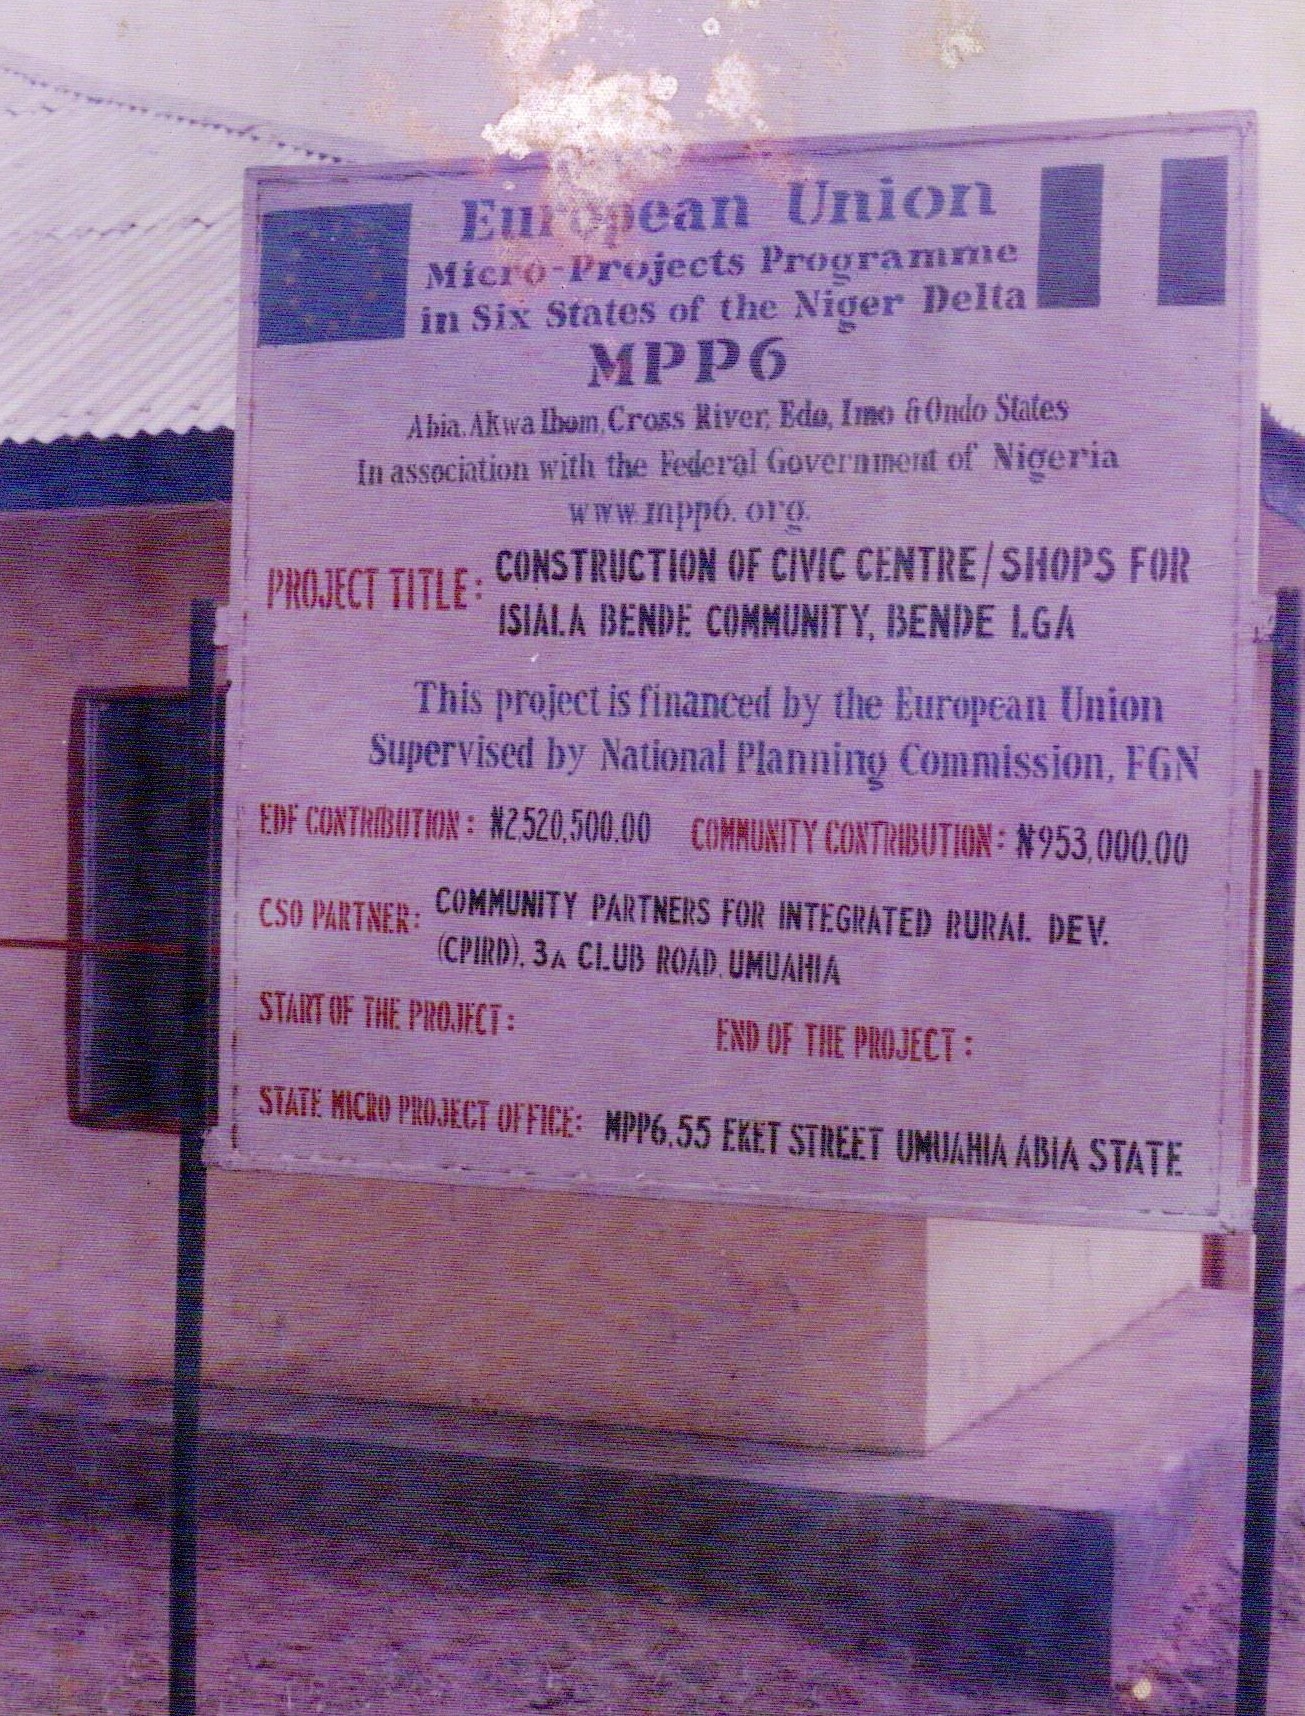 European Union
Micro-Projects Programme
in Six States of the Niger Delta
MPP6
Abia, Akwa Ibom, Cross River, Edo, Imo & Ondo States
In association with the Federal Government of Nigeria
www.mpp6.org.
PROJECT TITLE: CONSTRUCTION OF CIVIC CENTRE/SHOPS FOR
ISIALA BENDE COMMUNITY, BENDE LGA
This project is financed by the European Union
Supervised by National Planning Commission, FGN
EDF CONTRIBUTION: ₦2,520,500.00 COMMUNITY CONTRIBUTION: ₦953,000.00
CSO PARTNER: COMMUNITY PARTNERS FOR INTEGRATED RURAL DEV.
(CPIRD), 3A CLUB ROAD, UMUAHIA
START OF THE PROJECT: END OF THE PROJECT:
STATE MICRO PROJECT OFFICE: MPP6,55 EKET STREET UMUAHIA ABIA STATE